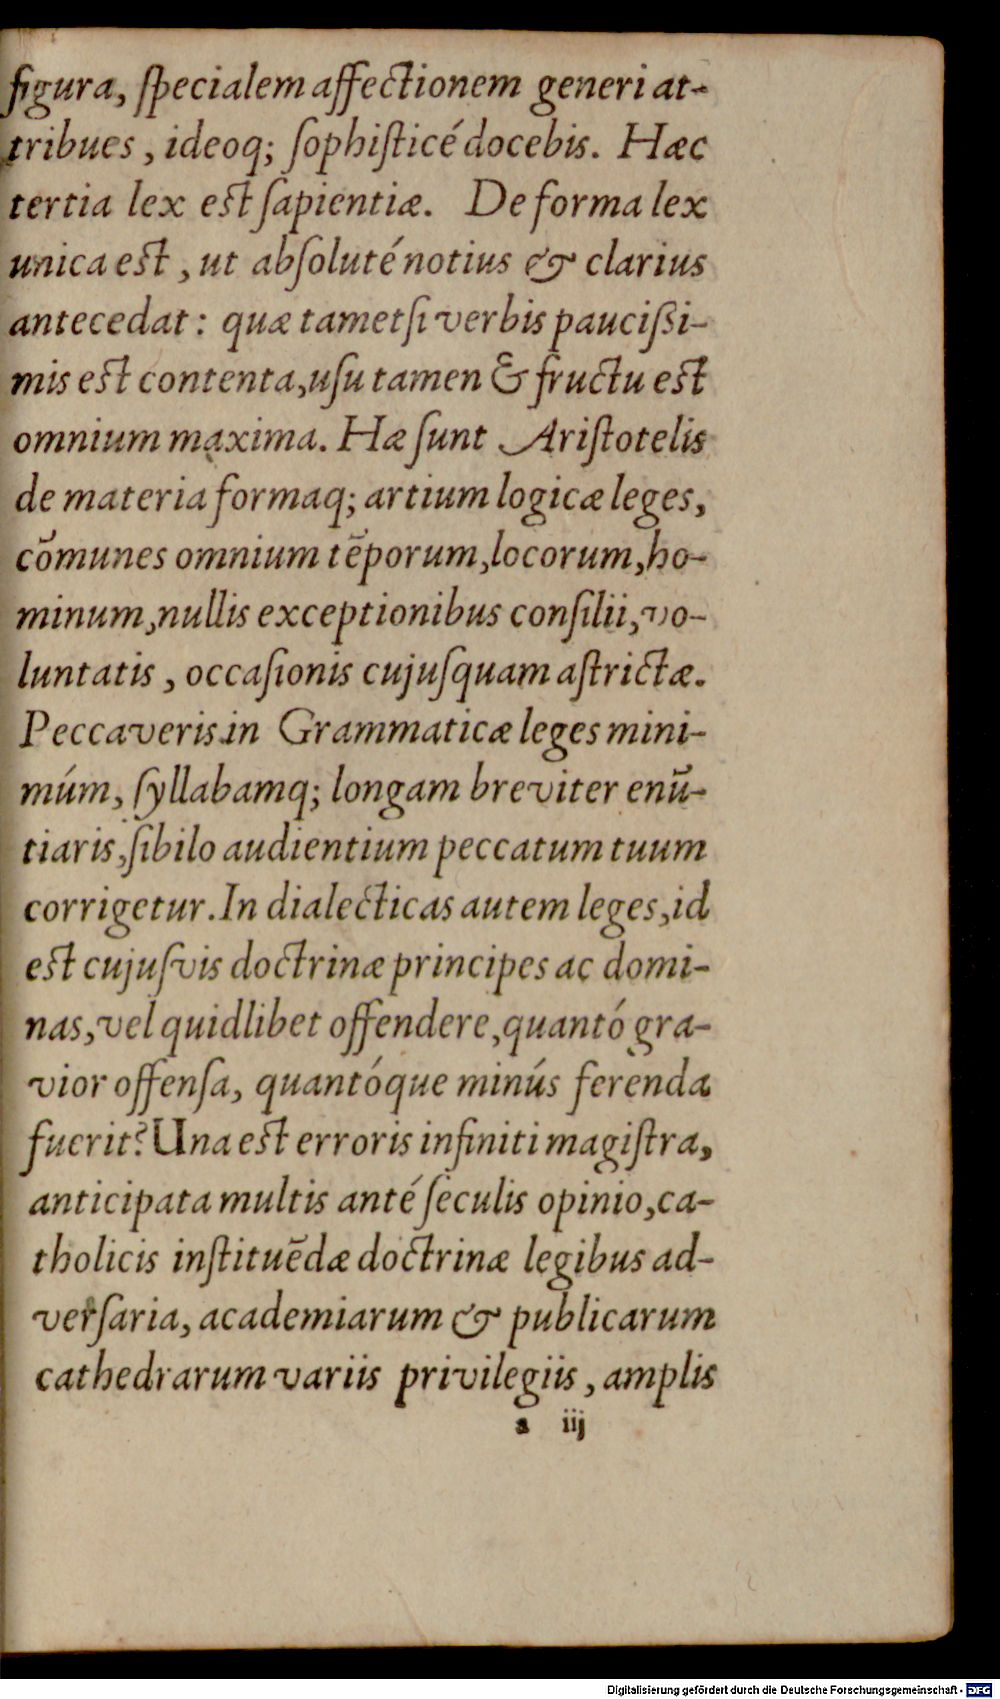 figura, ſpecialem affectionem generi at-
tribues, ideoq; ſophiſticé docebis. Hæc
tertia lex est ſapientiæ. De forma lex
unica est, ut abſoluté notius & clarius
antecedat: quæ tametſi verbis pauciſsi-
mis est contenta, uſu tamen & fructu est
omnium maxima. Hæ ſunt Ariſtotelis
de materia formaq; artium logicæ leges,
cōmunes omnium tēporum, locorum, ho-
minum, nullis exceptionibus conſilii, vo-
luntatis, occaſionis cujuſquam aſtrictæ.
Peccaveris in Grammaticæ leges mini-
múm, ſyllabamq; longam breviter enū-
tiaris, ſibilo audientium peccatum tuum
corrigetur. In dialecticas autem leges, id
est cujuſvis doctrinæ principes ac domi-
nas, vel quidlibet offendere, quantó gra-
vior offenſa, quantóque minús ferenda
fuerit? Una est erroris infiniti magiſtra,
anticipata multis anté ſeculis opinio, ca-
tholicis inſtituēdæ doctrinæ legibus ad-
verſaria, academiarum & publicarum
cathedrarum variis privilegiis, amplis
a iij
Digitalisierung gefördert durch die Deutsche Forschungsgemeinschaft - DFG